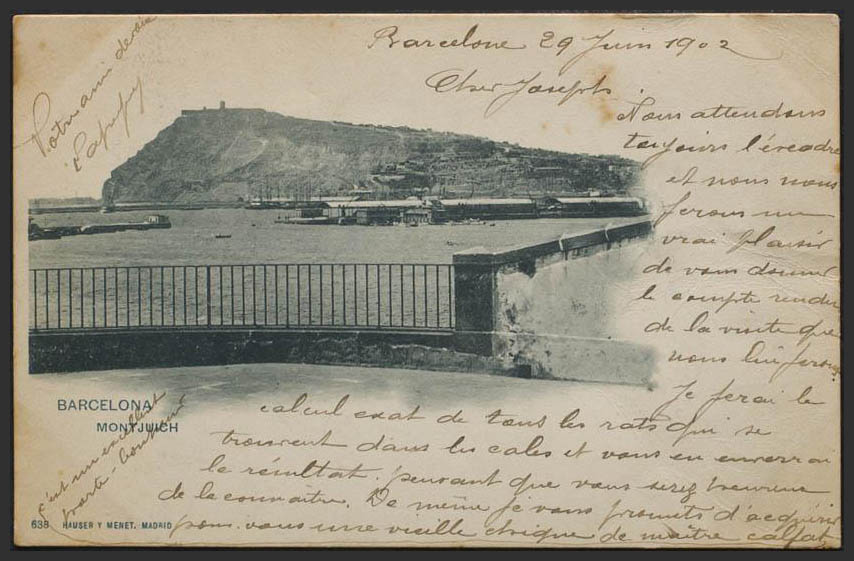 Barcelone 29 Juin 1902
Cher Joseph
Nous attendons
toujours l'escadre
et nous nous
ferons un
vrai plaisir
de vous donner
le compte rendu
de la visite que
nous lui ferons
Je ferai le
calcul exat de tous les rats qui se
trouvent dans les cales et vous en enverrai
le résultat, pensant que vous serez heureux
de le connaître. De même je vous promets d'acquérir
pour vous une vieille chique de maître calfat
Votre ami
BARCELONA
MONTJUICH
c'est un excellent
porte-bonheur
638 HAUSER Y MENET. MADRID